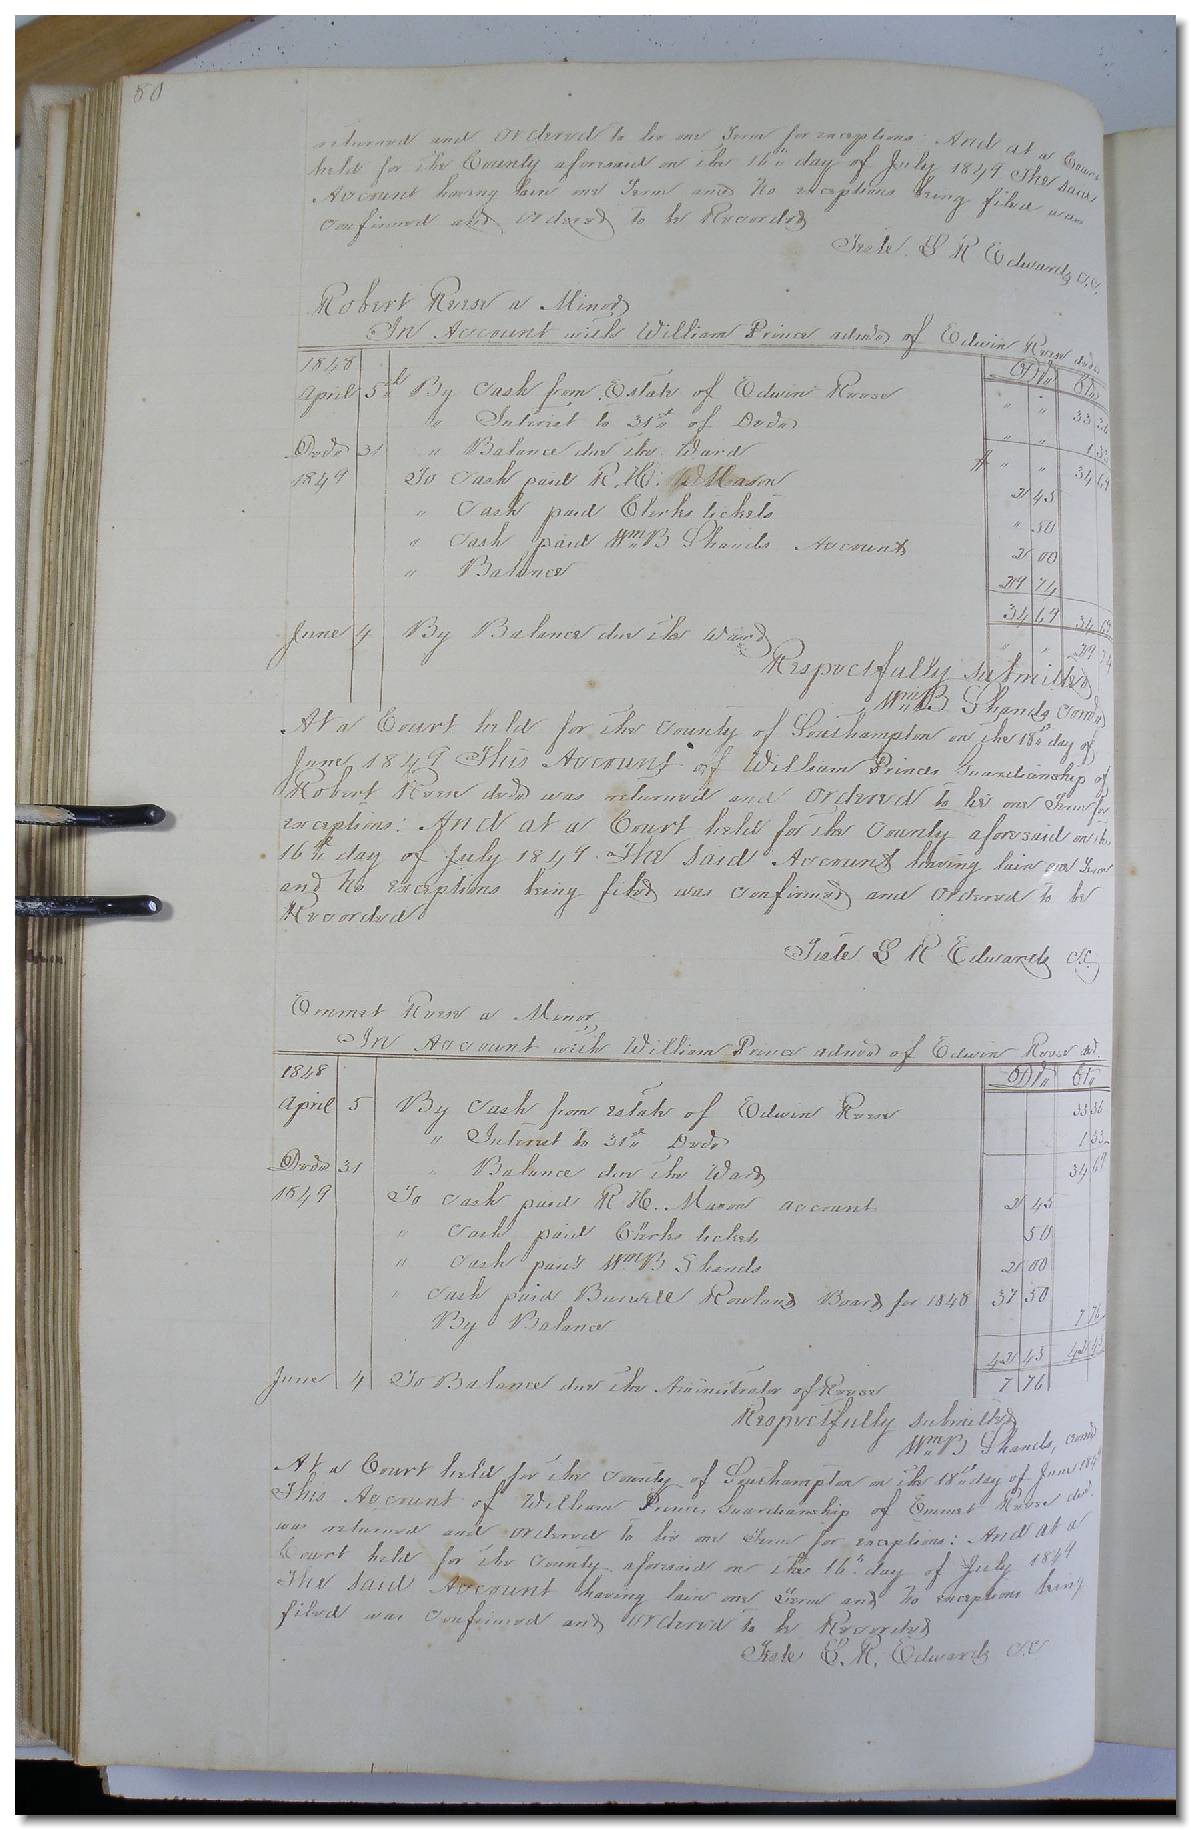 80
returned and Ordered to lie one Term for exceptions. And at a Court
held for the County aforesaid on the 16th day of July 1849 The said
Account having lain one Term and no exceptions being filed was
confirmed and Ordered to be Recorded
Teste. L R Edwards C.C.
Robert Reese a Minor
In Account with William Prince admor of Edwin Reese decd
1848 Dr Cr
April 5th By Cash from Estate of Edwin Reese " " 33 36
" Interest to 31st of Decr " " 1 33
Decr 31 " Balance due the Ward $ " " 34 69
1849 To Cash paid R. H. Mason 2 45
" Cash paid Clerks tickets " 50
" Cash paid Wm B Shands Account 2 00
" Balance 29 74
34 69 34 69
June 4 By Balance due the Ward " " 29 74
Respectfully submitted
Wm B Shands Comr
At a Court held for the County of Southampton on the 18th day of
June 1849 This Account of William Princes Guardianship of
Robert Reese decd was returned and Ordered to lie one Term for
exceptions: And at a Court held for the County aforesaid on the
16th day of July 1849. The said Account having lain one Term
and no exceptions being filed was confirmed and Ordered to be
Recorded
Teste L R Edwards C.C.
Emmet Reese a Minor
In Account with William Prince admor of Edwin Reese dec.
1848 Dr Cr
April 5 By Cash from estate of Edwin Reese 33 36
" Interest to 31st Decr 1 33
Decr 31 " Balance due the Ward 34 69
1849 To Cash paid R H. Mason account 2 45
" Cash paid Clerks tickets 50
" Cash paid Wm B Shands 2 00
" Cash paid Burwell Rowland Board for 1848 37 50
By Balance 7 76
42 45 42 45
June 4 To Balance due the Administrator of Reese 7 76
Respectfully submitted
Wm B Shands, Comr
At a Court held for the County of Southampton on the 18th day of June 1849
This Account of William Princes Guardianship of Emmet Reese decd.
was returned and Ordered to lie one Term for exceptions: And at a
Court held for the County aforesaid on the 16th day of July 1849
The said Account having lain one Term and no exceptions being
filed was confirmed and Ordered to be Recorded
Teste L. R. Edwards C.C